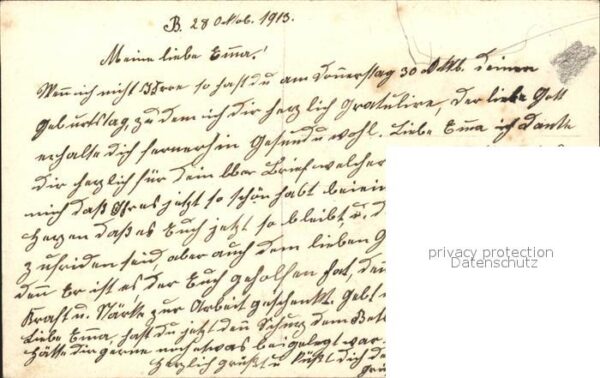 B. 28 Oktob. 1913.
Meine liebe Emma!
Wenn ich nicht Irre so hast du am Donnerstag 30 Okt. deinen
Geburtstag, zu dem ich dir herzlich Gratulire, der liebe Gott
erhalte dich fernerhin Gesund u wohl. Liebe Emma ich Danke
dir herzlich für dein lbr Brief welcher
mich daß Ihr es jetzt so schön habt beiein
Herzen daß es Euch jetzt so bleibt u. d
zufriden seid aber auch dem lieben G
denn Er ist es der Euch geholfen hat, dein
Kraft u. Stärke zur Arbeit geschenkt. Gebt
Liebe Emma, hast du jetzt den Schurz dem
Hätte dir gerne noch etwas beigelegt war
Herzlich grüßt u küßt dich de
privacy protection
Datenschutz